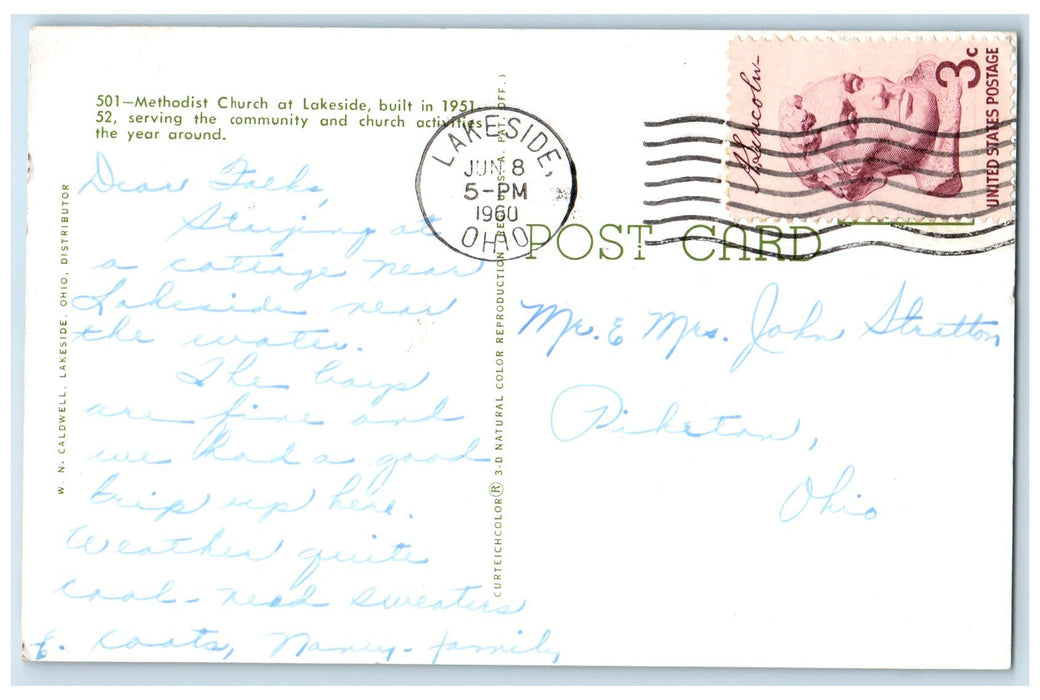 501—Methodist Church at Lakeside, built in 1951
52, serving the community and church activities
the year around.
Dear Folks,
Staying at
a cottage near
Lakeside near
the water.
The boys
are fine and
we had a good
trip up here.
Weather quite
cool - need sweaters
& coats, Nancy - family
W. N. CALDWELL, LAKESIDE, OHIO, DISTRIBUTOR
CURTEICHCOLOR® 3-D NATURAL COLOR REPRODUCTION (REG. U.S.A. PAT. OFF.)
LAKESIDE,
JUN 8
5-PM
1960
OHIO
A. Lincoln
3c
UNITED STATES POSTAGE
POST CARD
Mr. & Mrs. John Stratton
Piketon,
Ohio